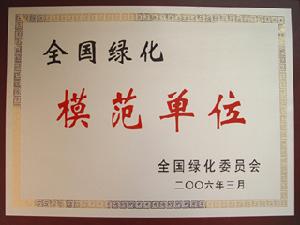 全国绿化
模范单位
全国绿化委员会
二〇〇六年三月